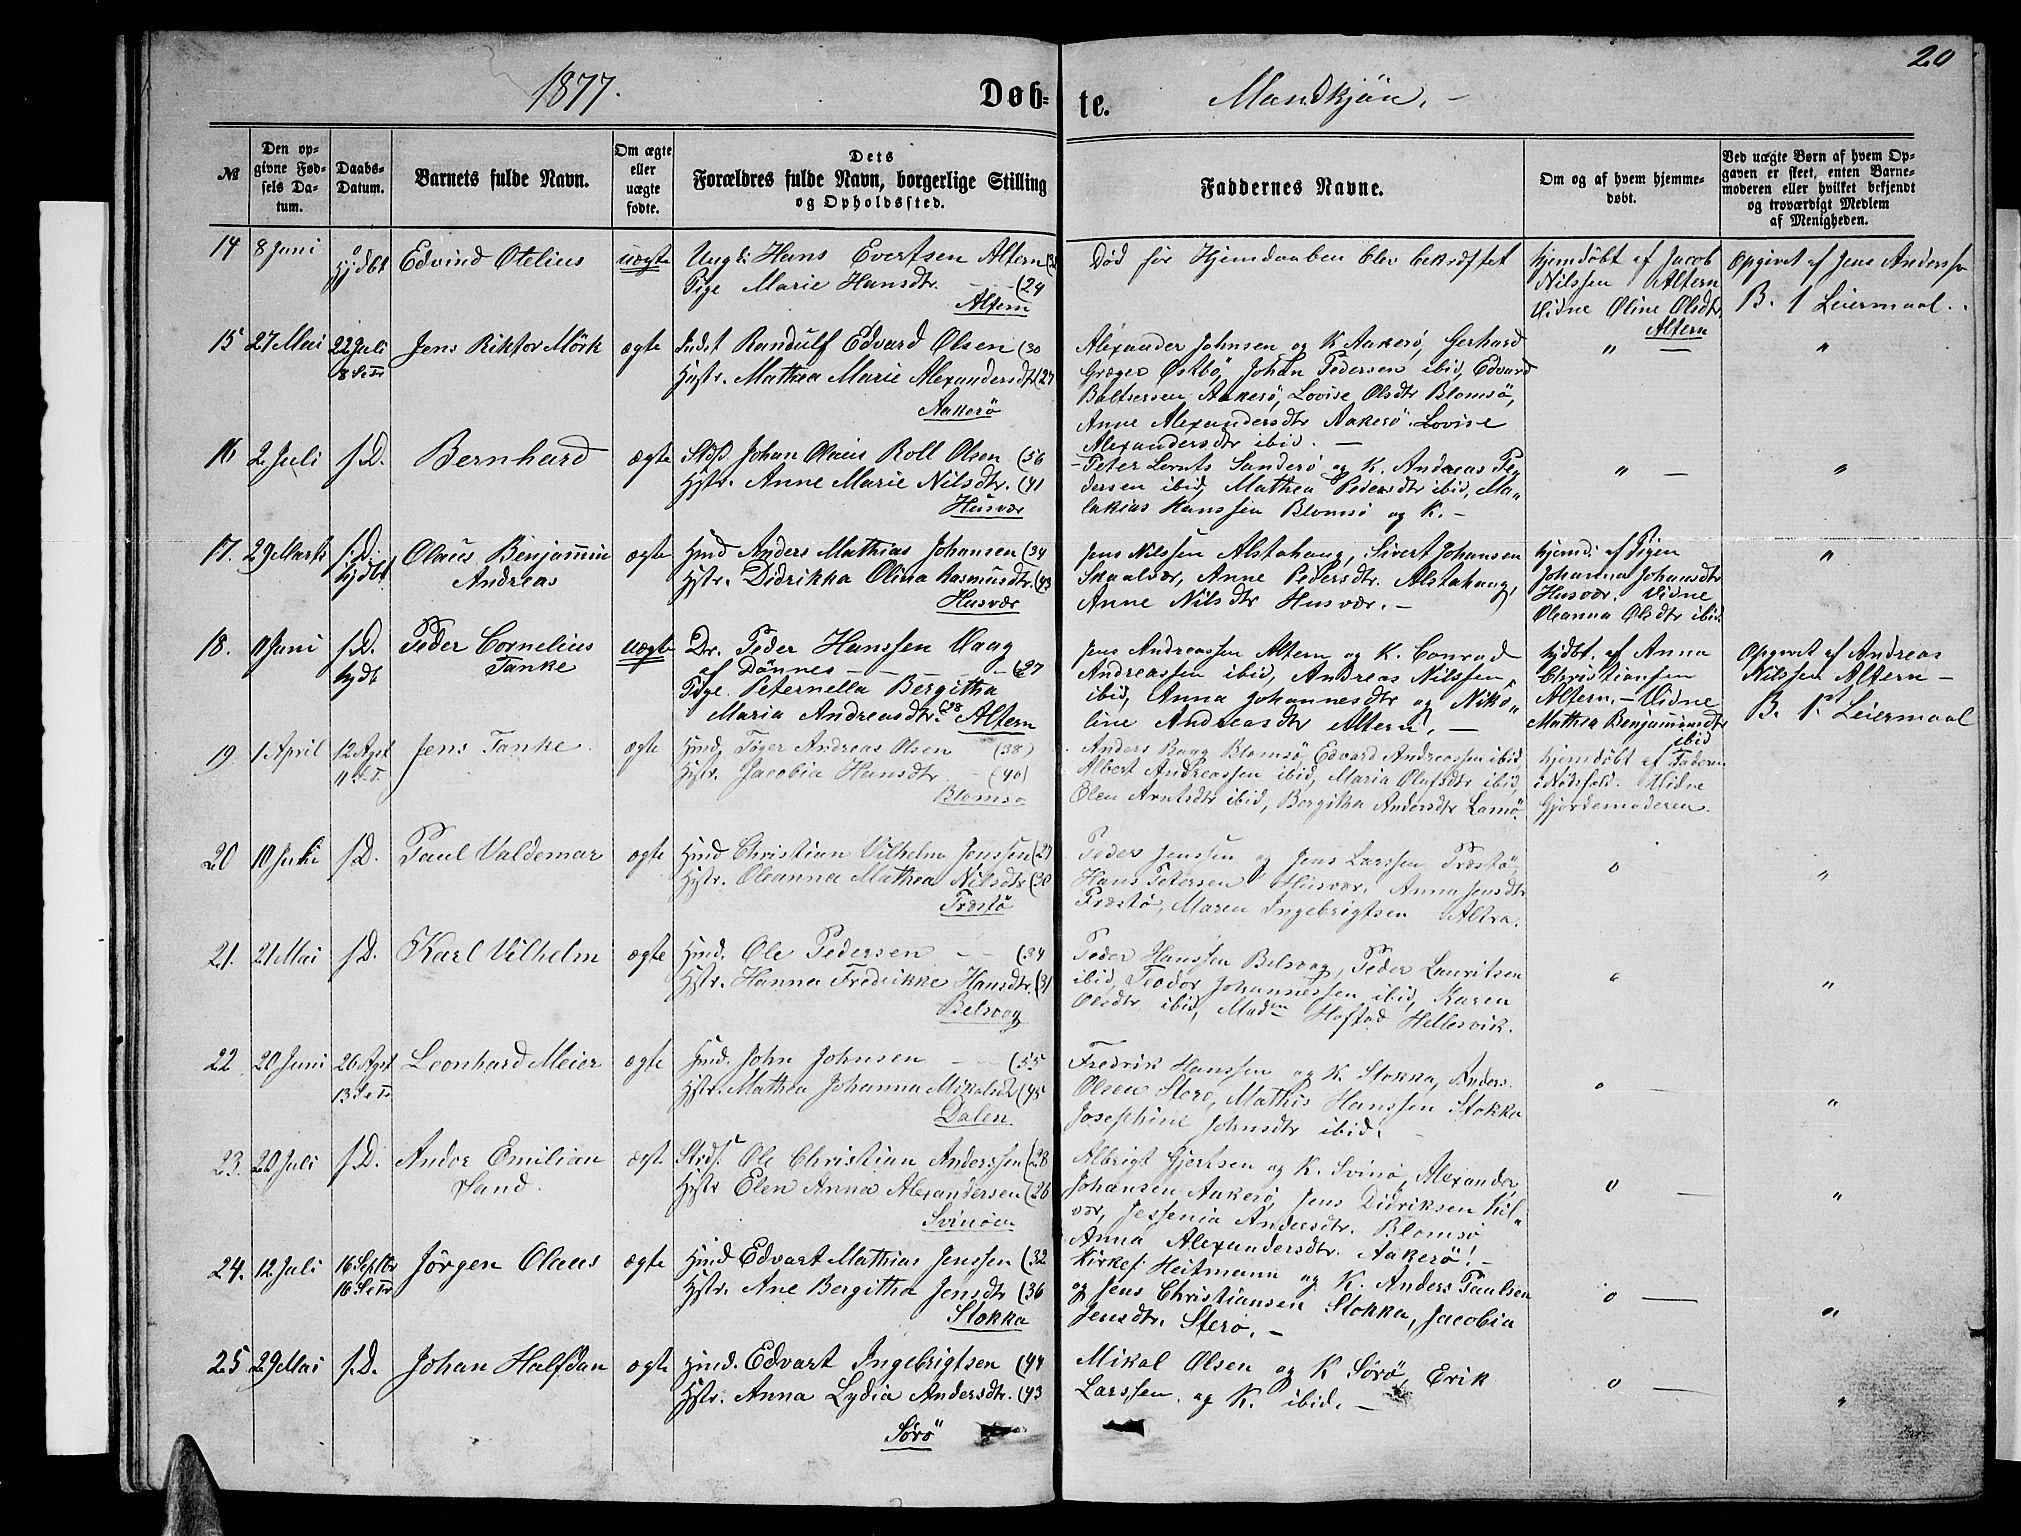 20
1877.
Døb-
te.
Mandkjön. -
№
Den op-
givne Fød-
sels Da-
tum.
Daabs-
Datum.
Barnets fulde Navn.
Om ægte
eller
uægte
fødte.
Dets
Forældres fulde Navn, borgerlige Stilling
og Opholdssted.
Faddernes Navne.
Om og af hvem hjemme-
døbt.
Ved uægte Børn af hvem Op-
gaven er skeet, enten Barne-
moderen eller hvilket bekjendt
og troværdigt Medlem
af Menigheden.
14 8 Juni
hjdbt
Edvind Otelius
uægte
Ungk: Hans Evertsen Altern
Pige Marie Hansdtr. - - (24
Altern
Död før Hjemdaaben blev bekræftet
hjemdöbt af Jacob
Nilssen Altern
Vidne Oline Olsdtr
Altern
Opgivet af Jens Anderssen
B. 1 Leiermaal.
15 27 Mai
22 Juli
8 S e Tr
Jens Riktor Mörk
ægte
Indst Randulf Edvard Olsen (30
Hustr. Mathea Marie Alexandersdtr (27
Aakerö
Alexander Johnsen og K Aakerø, Gerhard
Græger Østbö, Johan Pedersen ibid, Edvard
Baltsersen Aakerö, Lovise Olsdtr Blomsö,
Anne Alexandersdtr Aakerö. Lovise
Alexandersdtr ibid. -
" -
"
16 2 Juli
s. D.
Bernhard
ægte
Johan Olaus Roll Olsen (56
Hstr. Anne Marie Nilsdtr. (41
Husvær
- Peter Lornts Sanderö og K. Andreas Pe-
dersen ibid, Mathea Pedersdtr ibid, Ma-
lakias Hanssen Blomsö og K. -
" -
"
17. 29 Marts
s. D.
hjdbt
Olaus Benjamin
Andreas
ægte
Hmd Anders Mathias Johansen (34
Hstr. Didrikka Olina Rasmusdtr. (43
Husvær
Jens Nilssen Alstahaug, Sivert Johansen
Skaalvær, Anne Pedersdtr. Alstahaug,
Anne Nilsdtr Husvær. -
hjemd. af Pigen
Johanna Johansdtr
Husvær. Vidne
Oleanna Olsdtr ibid.
"
18. Juni
s. D.
hjdt
Peder Cornelius
Tanke
uægte
Dr. Peder Hanssen Haag
af Dönnes - - (27
Pige. Peternella Bergitha
Maria Andreasdtr. (28 Altern
Jens Andreassen Altern og K. Conrad
Andreassen ibid, Andreas Nilssen
ibid, Anna Johannesdtr og Niko-
line Andreasdtr Altern. -
hjdbt. af Anna
Christiansen
Altern. - Vidne
Mathea Benjaminsdtr
ibid
Opgivet af Andreas
Nilssen Altern -
B. 1st Leiermaal
19 1 April
12 Agst
11 S. e. T.
Jens Tanke.
ægte
Hmd. Töger Andreas Olsen (38)
Hstr. Jacobia Hansdtr. - (40)
Blomsø
Anders Baag Blomsö, Edvard Andreassen ibid,
Albert Andreassen ibid, Maria Olufsdtr ibid,
Olen Arntsdtr ibid, Bergitha Andersdtr Lamö.
hjemdöbt af Faderen
i Nödsfald. Vidne
Gjordemoderen.
20 10 Juli
s. D.
Paul Valdemar
ægte
Hmd Christian Vilhelm Jenssen (27
Hstr. Oleanna Mathea Nilsdtr (30
Træstö
Peder Jenssen og Jens Larssen Træstö,
Hans Petersen Husvær, Anna Jensdtr
Træstö, Maren Ingebrigtsen Altra.
o
"
21. 21 Mai
s. D.
Karl Vilhelm
ægte
Hmd. Ole Pedersen - - (34
Hstr. Hanna Fredrikke Hansdtr. (31
Belsvag
Peder Hanssen Belsvag, Peder Lauritsen
ibid, Teodor Johannessen ibid, Karen
Olsdtr ibid, Madm Hofstad Hellesvik.
"
"
22 20 Juni
26 Agst
13 S e Tr
Leonhard Meier
ægte
Hmd. John Johnsen - - (55
Hstr. Mathea Johanna Mikalsdt (45
Dalen
Fredrik Hanssen og K. Stokka, Anders
Olsen Sterø, Mathis Hanssen Stokka
Josephine Johnsdtr ibid.
o -
"
23. 20 Juli
s. D.
Andor Emilian
Sand.
ægte
Ole Christian Anderssen (28
Hstr Elen Anna Alexandersen (26
Svinöen
Albrigt Gjertsen og K. Svinö, Alexander
Johansen Aakerö, Jens Didriksen Kil-
vær, Jessenia Andersdtr. Blomsö
Anna Alexandersdtr. Aakerö! -
o -
"
24. 12 Juli
16 Septbr
16 S e Tr
Jörgen Olaus
ægte
Hmd Edvart Mathias Jenssen (32
Hstr. Ane Bergitha Jensdtr (36
Stokka
Kirkes: Heitmann og K. Anders Paulsen
og Jens Christiansen Stokka, Jacobia
Jensdtr. Sterø. -
o -
"
25 29 Mai
s. D.
Johan Halfdan
ægte
Hmd. Edvart Ingebrigtsen (44
Hstr. Anna Lydia Andersdtr. (43
Sörö
Mikal Olsen og K Sörö, Erik
Larssen og K. ibid. -
o -
"